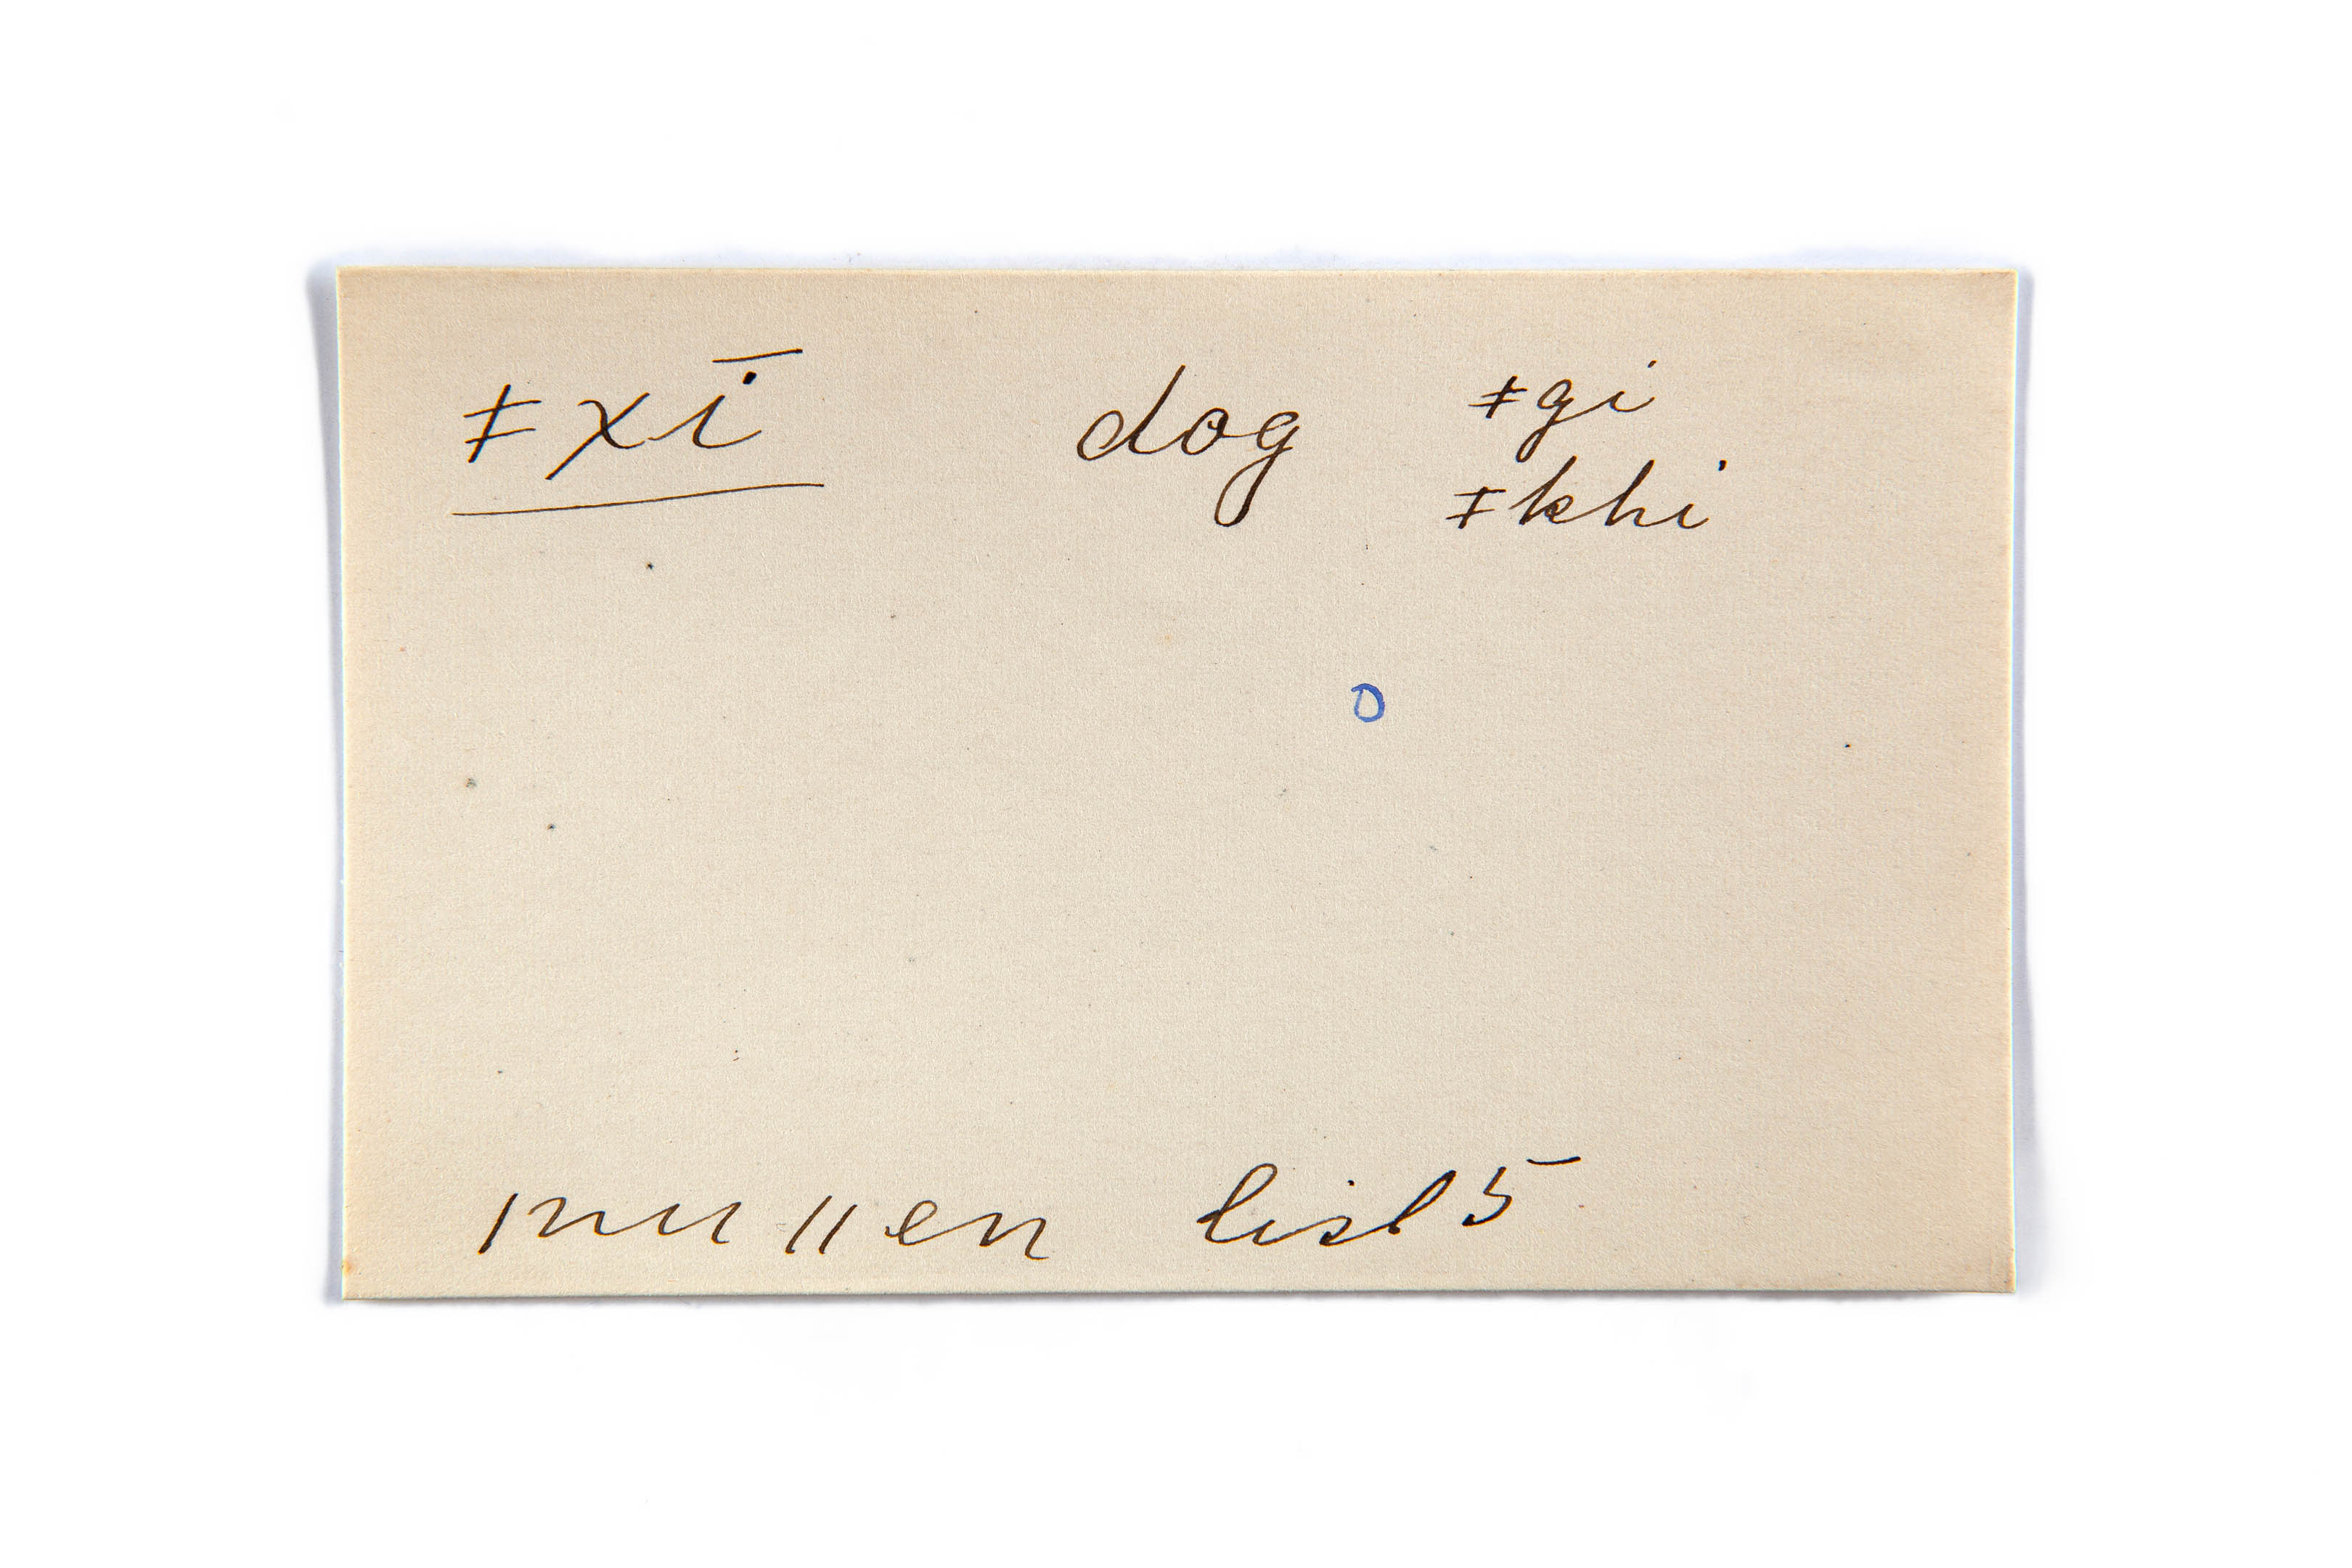 ǂxī dog ǂgi
ǂkhi
o
ǀnu ǁen list 5